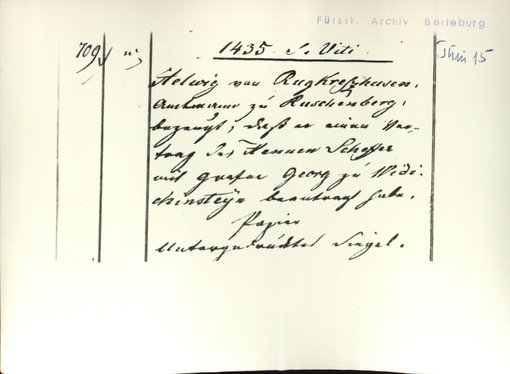 Fürstl. Archiv Berleburg
709
1435. S. Viti.
Juni 15
Helwig von Rugkreshusen,
Amtmann zu Ruschenberg,
bezeugt, daß er einen Ver-
trag des Hennen Scheffer
mit Grafen Georg zu Witt-
chinsteyn beantragt habe.
Papier
Untergedrücktes Siegel.